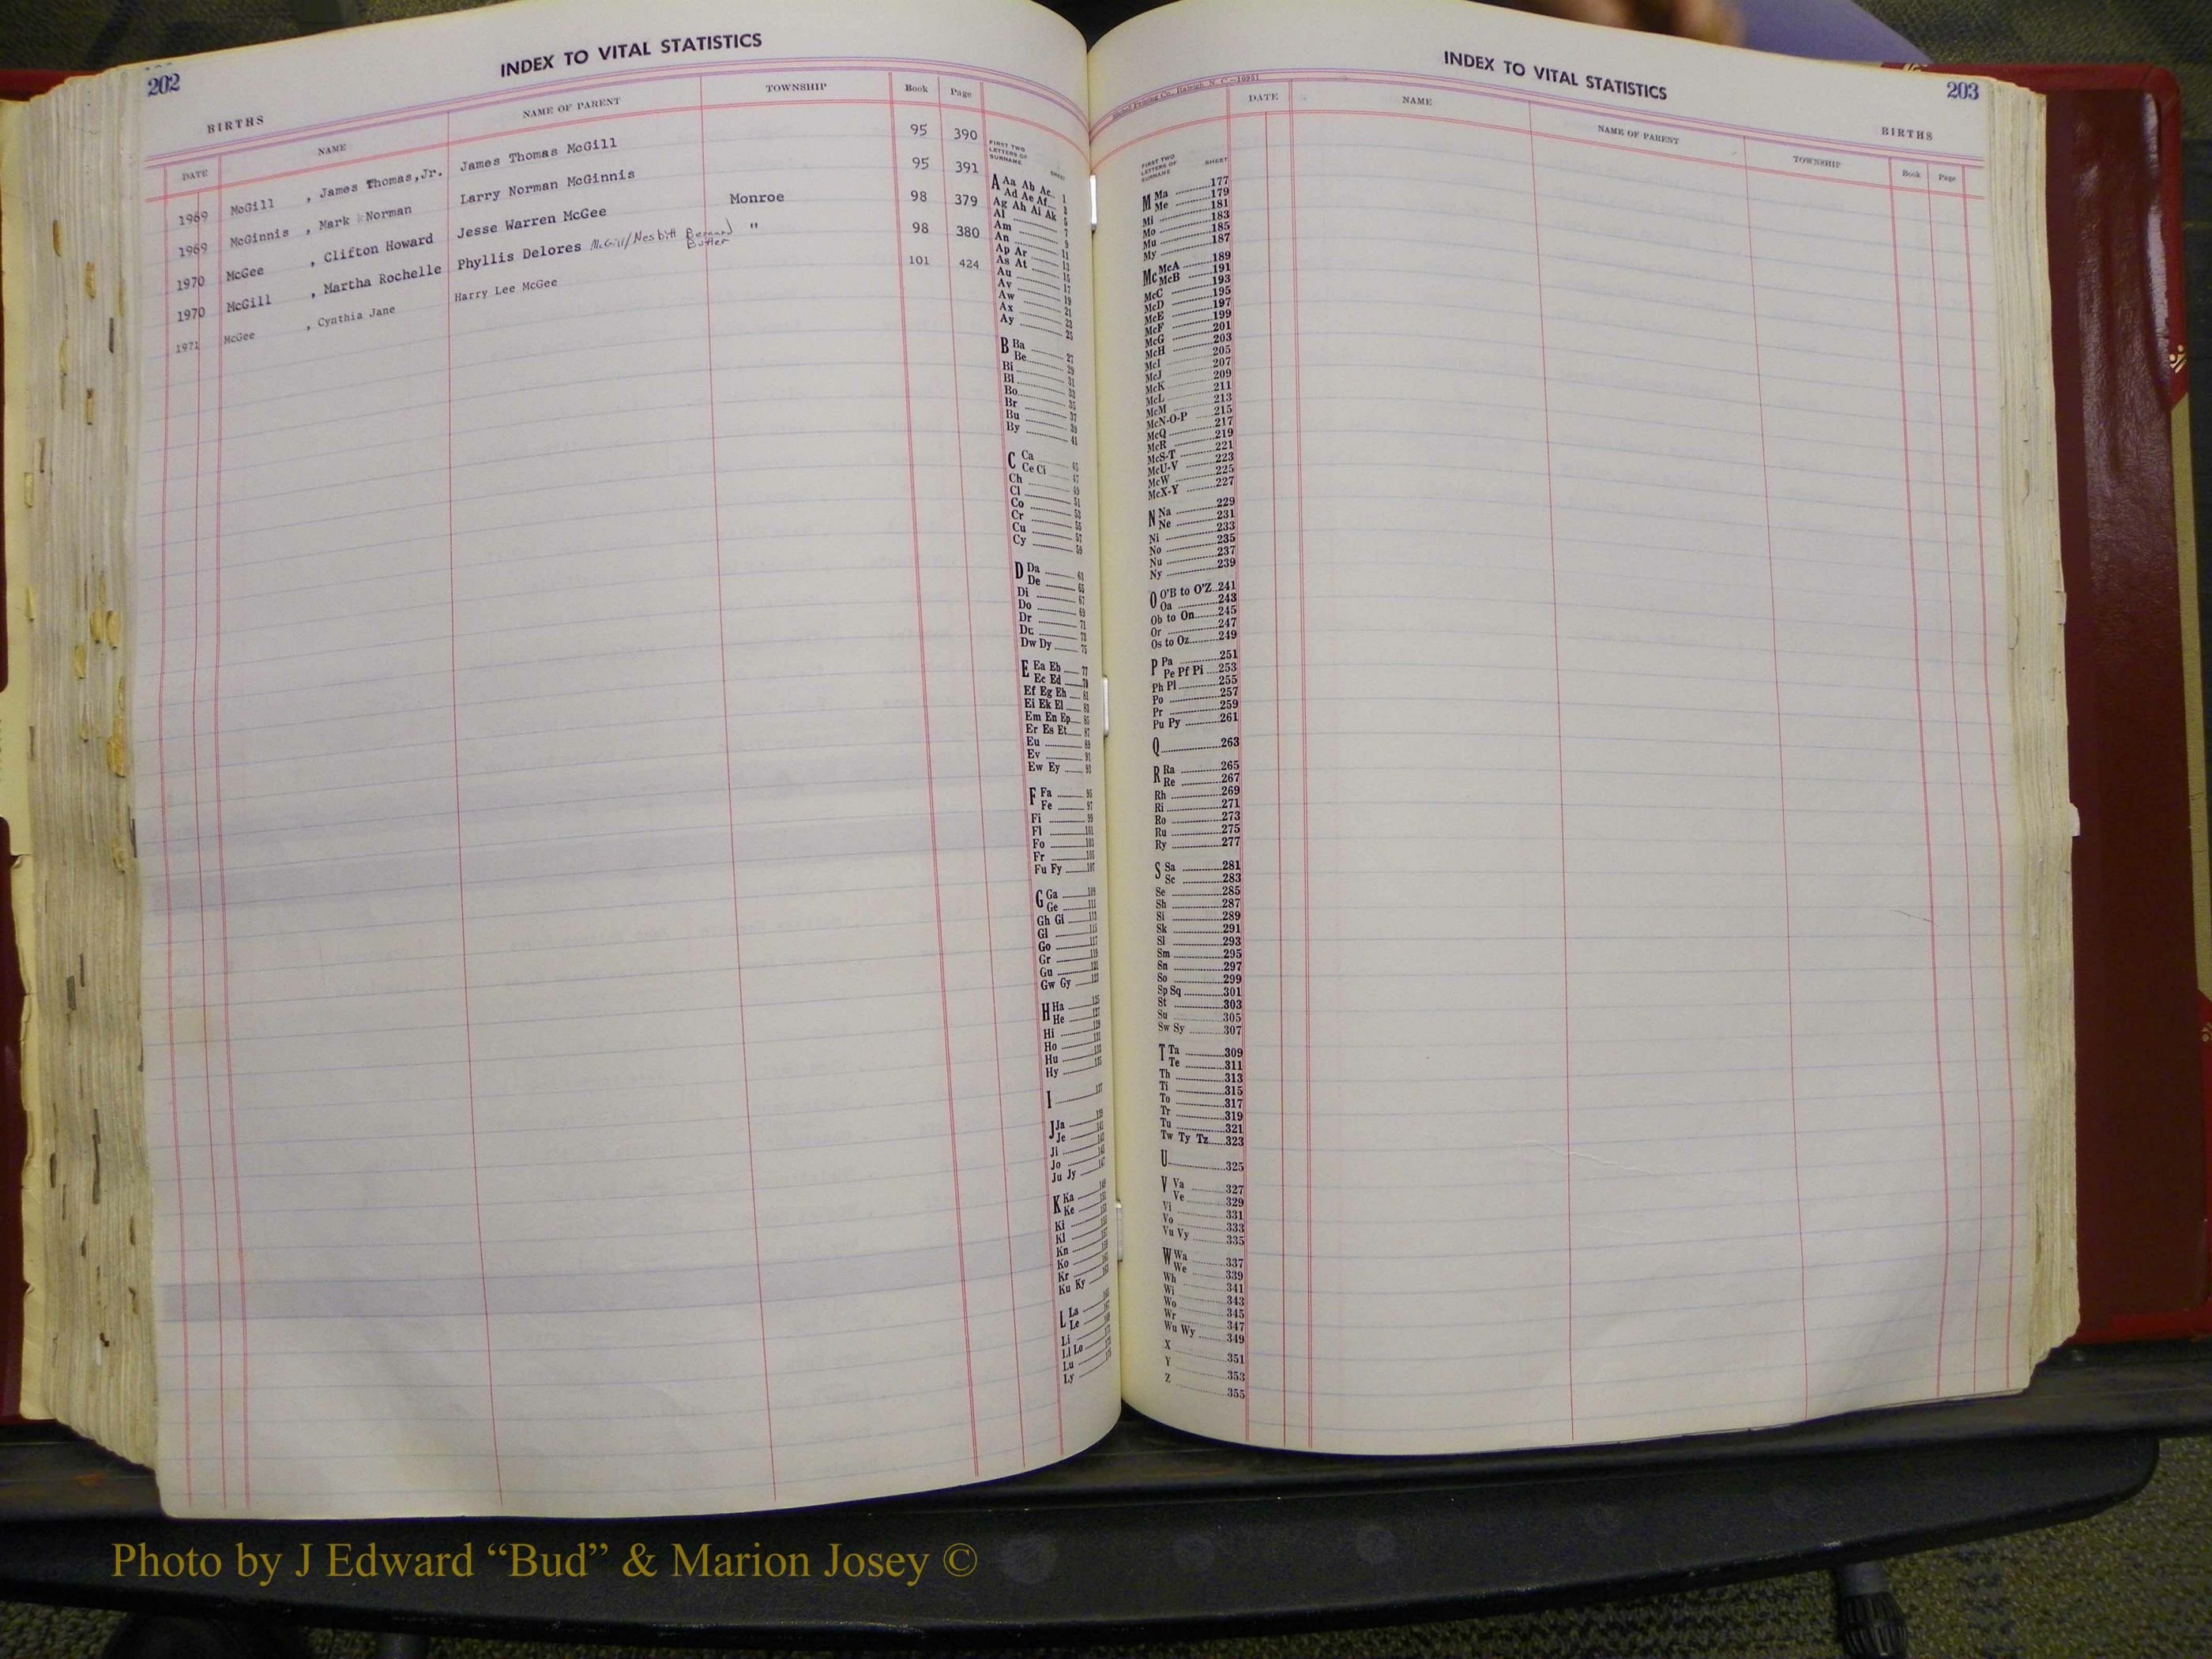 202
INDEX TO VITAL STATISTICS
BIRTHS
DATE NAME NAME OF PARENT TOWNSHIP Book Page
1969 McGill , James Thomas, Jr. James Thomas McGill 95 390
1969 McGinnis , Mark Norman Larry Norman McGinnis 95 391
1970 McGee , Clifton Howard Jesse Warren McGee Monroe 98 379
1970 McGill , Martha Rochelle Phyllis Delores McGill/Nesbitt Bernard Butler " 98 380
1971 McGee , Cynthia Jane Harry Lee McGee 101 424
FIRST TWO LETTERS OF SURNAME SHEET
A Aa Ab Ac 1
Ad Ae Af 3
Ag Ah Ai Ak 5
Al 7
Am 9
An 11
Ap Ar 13
As At 15
Au 17
Av 19
Aw 21
Ax 23
Ay 25
B Ba 27
Be 29
Bi 31
Bl 33
Bo 35
Br 37
Bu 39
By 41
C Ca 45
Ce Ci 47
Ch 49
Cl 51
Co 53
Cr 55
Cu 57
Cy 59
D Da 63
De 65
Di 67
Do 69
Dr 71
Du 73
Dw Dy 75
E Ea Eb 77
Ec Ed 79
Ef Eg Eh 81
Ei Ek El 83
Em En Ep 85
Er Es Et 87
Eu 89
Ev 91
Ew Ey 93
F Fa 95
Fe 97
Fi 99
Fl 101
Fo 103
Fr 105
Fu Fy 107
G Ga 109
Ge 111
Gh Gi 113
Gl 115
Go 117
Gr 119
Gu 121
Gw Gy 123
H Ha 125
He 127
Hi 129
Ho 131
Hu 133
Hy 135
I 137
J Ja 139
Je 141
Ji
Jo
Ju Jy
K Ka
Ke
Ki
Kl
Kn
Ko
Kr
Ku Ky
L La
Le
Li
Ll Lo
Lu
Ly
203
INDEX TO VITAL STATISTICS
BIRTHS
Printing Co., Raleigh, N. C.—10951
DATE NAME NAME OF PARENT TOWNSHIP Book Page
FIRST TWO LETTERS OF SURNAME SHEET
M Ma 177
Me 179
Mi 181
Mo 183
Mu 185
My 187
Mc McA 189
McB 191
McC 193
McD 195
McE 197
McF 199
McG 201
McH 203
McI 205
McJ 207
McK 209
McL 211
McM 213
McN-O-P 215
McQ 217
McR 219
McS-T 221
McU-V 223
McW 225
McX-Y 227
N Na 229
Ne 231
Ni 233
No 235
Nu 237
Ny 239
O O'B to O'Z 241
Oa 243
Ob to On 245
Or 247
Os to Oz 249
P Pa 251
Pe Pf Pi 253
Ph Pl 255
Po 257
Pr 259
Pu Py 261
Q 263
R Ra 265
Re 267
Rh 269
Ri 271
Ro 273
Ru 275
Ry 277
S Sa 281
Sc 283
Se 285
Sh 287
Si 289
Sk 291
Sl 293
Sm 295
Sn 297
So 299
Sp Sq 301
St 303
Su 305
Sw Sy 307
T Ta 309
Te 311
Th 313
Ti 315
To 317
Tr 319
Tu 321
Tw Ty Tz 323
U 325
V Va 327
Ve 329
Vi 331
Vo 333
Vu Vy 335
W Wa 337
We 339
Wh 341
Wi 343
Wo 345
Wr 347
Wu Wy 349
X 351
Y 353
Z 355
Photo by J Edward “Bud” & Marion Josey ©